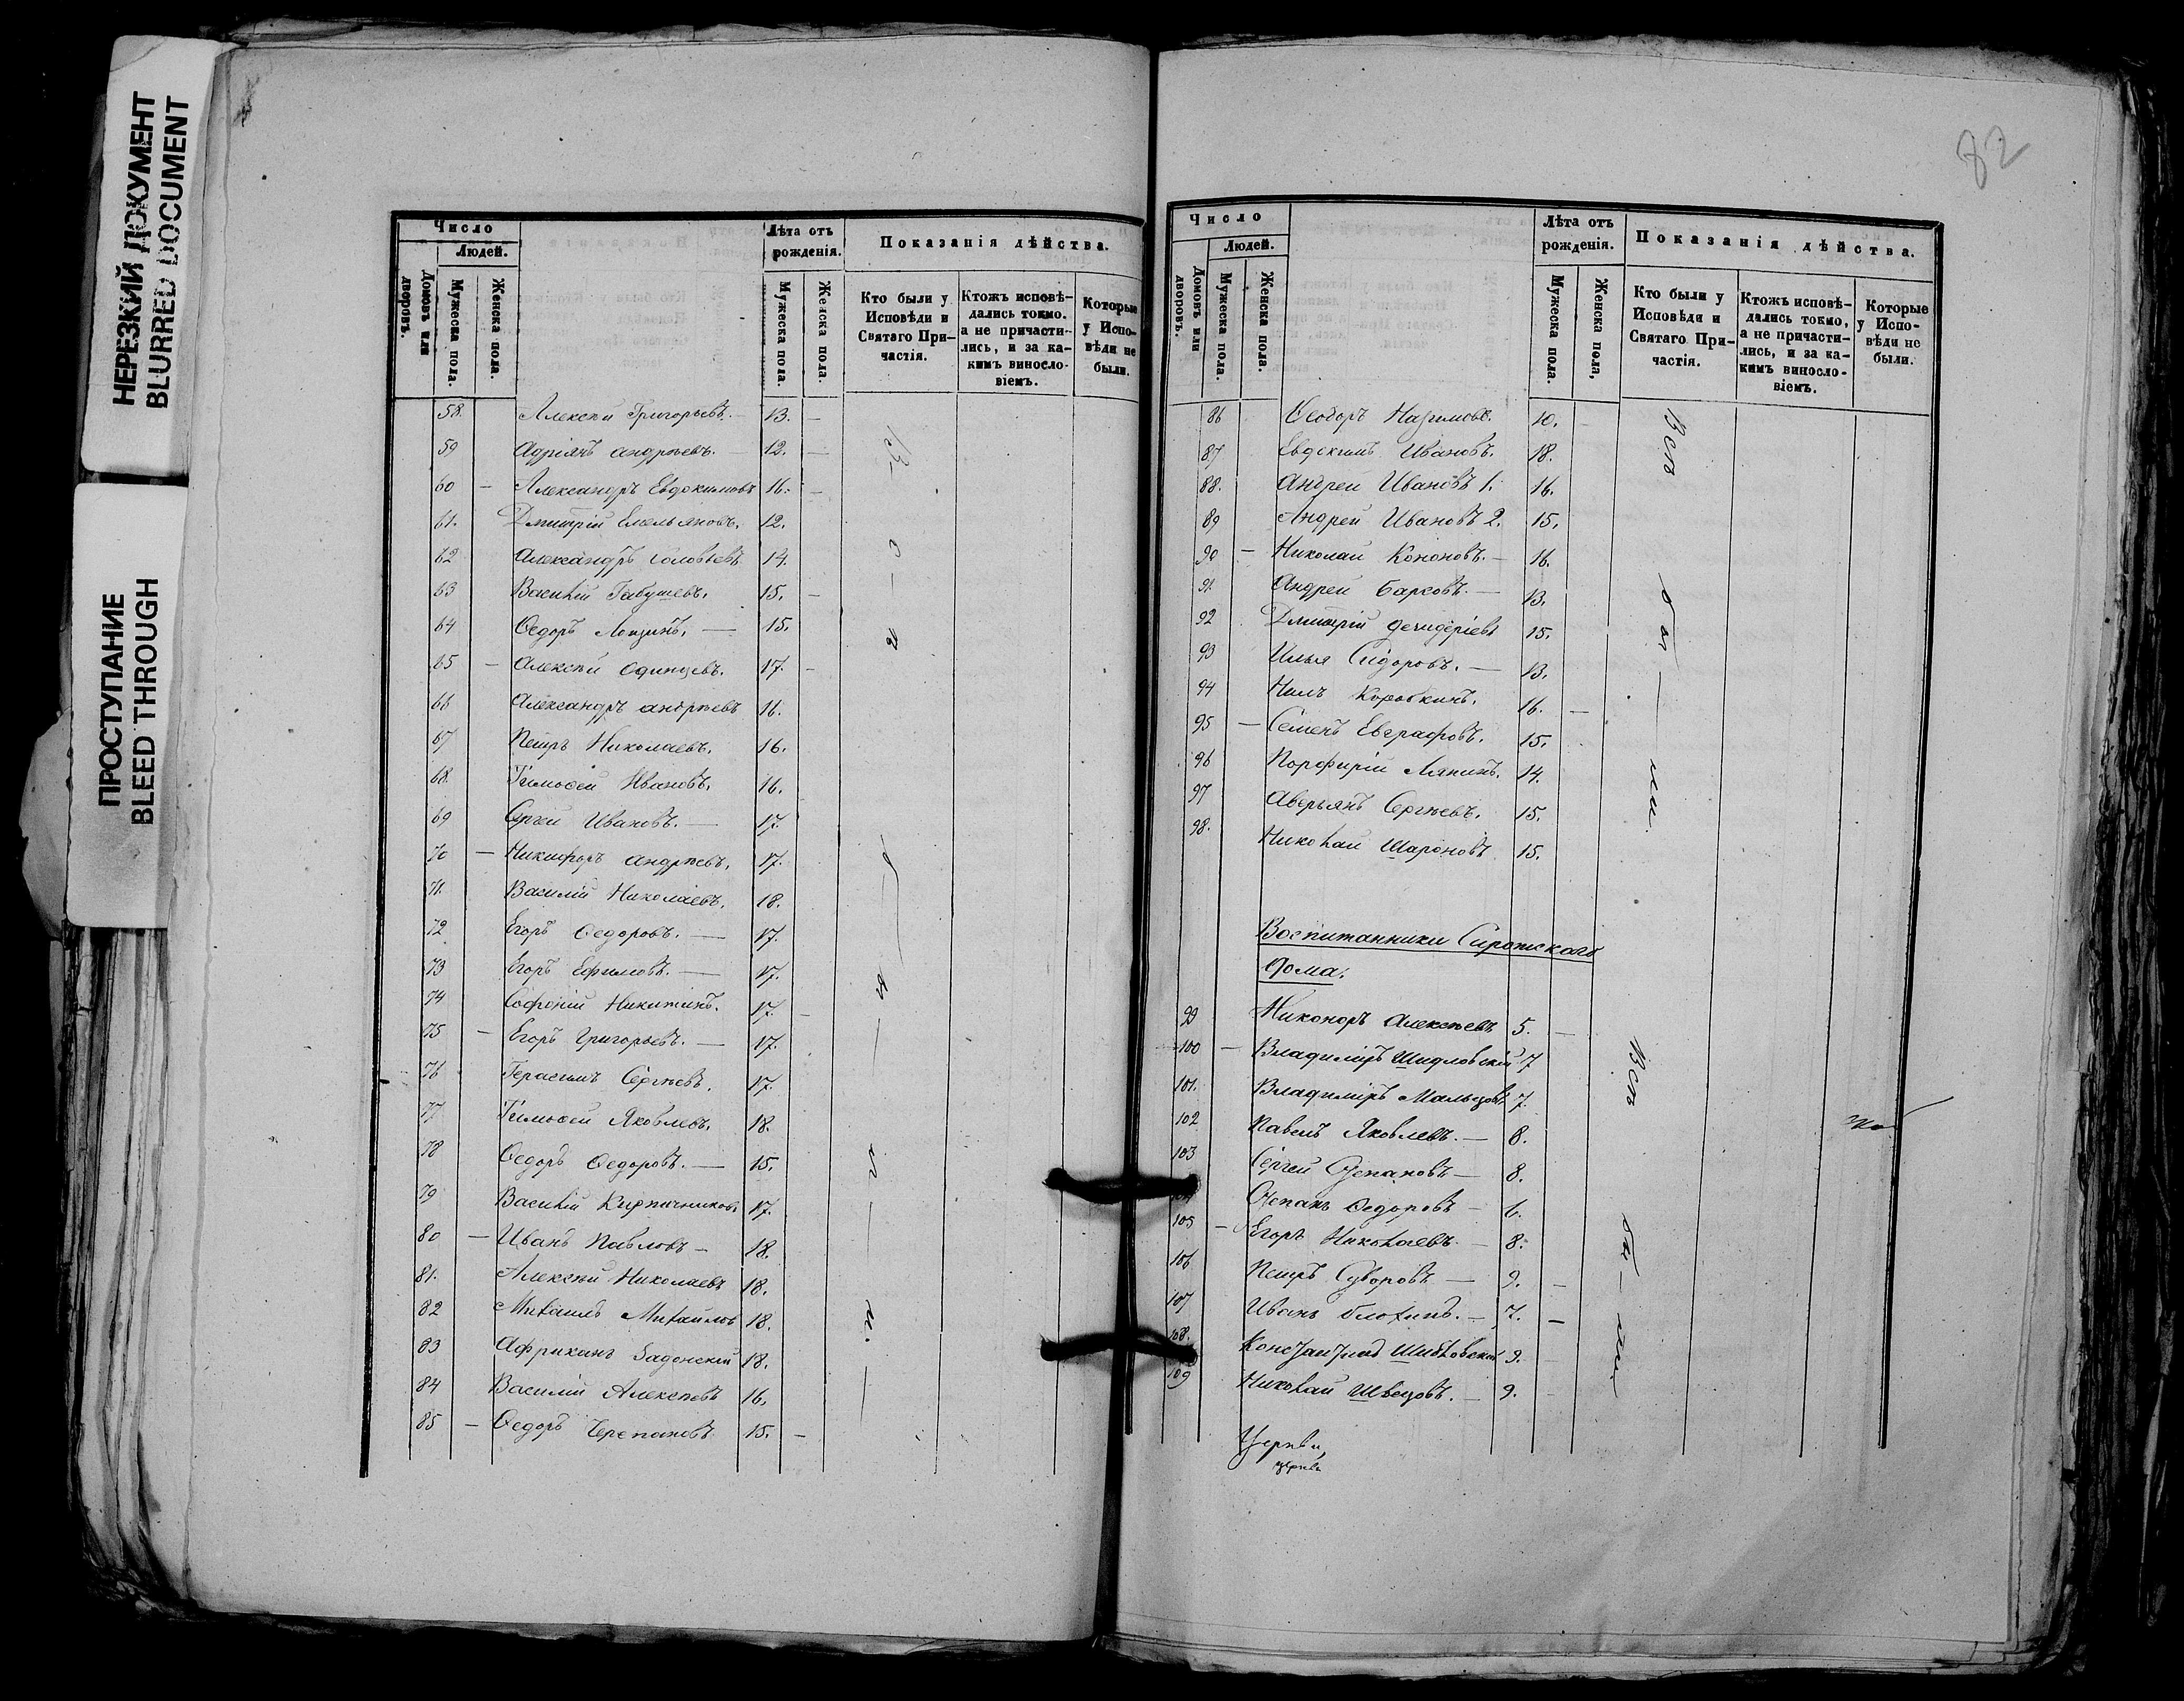 НЕРЕЗКИЙ ДОКУМЕНТ
BLURRED DOCUMENT
ПРОСТУПАНИЕ
BLEED THROUGH
Число
Людей.
Домовъ или дворовъ.
Мужеска пола.
Женска пола.
Лѣта отъ рожденія.
Мужеска пола.
Женска пола.
Показанія дѣйства.
Кто были у Исповѣди и Святаго Причастія.
Ктожъ исповѣдались токмо, а не причастились, и за какимъ винословіемъ.
Которые у Исповѣди не были.
58. Алексѣй Григорьевъ. 13.
59 Адріянъ Андреевъ. 12.
60 Александръ Евдокимовъ 16.
61. Дмитрій Емельяновъ. 12.
62 Александръ Соловьевъ 14.
63 Василій Габушевъ. 15.
64 Ѳедоръ 15.
65 Алексѣй Одинцевъ. 17.
66 Александръ Андреевъ 16.
67 Петръ Николаевъ. 16.
68. Тимоѳей Ивановъ. 16.
69 Сергей Ивановъ. 17.
70 Никифоръ Андреевъ. 17.
71. Василій Николаевъ. 18.
72 Егоръ Ѳедоровъ. 17.
73 Егоръ Ефимовъ. 17.
74 Софоній Никитинъ. 17.
75 Егоръ Григорьевъ. 17.
76 Герасимъ Сергѣевъ. 17.
77 Тимоѳей Яковлевъ. 18.
78 Ѳедоръ Ѳедоровъ. 15.
79 Василій Кирпичниковъ 17.
80 Иванъ Павловъ 18.
81. Алексѣй Николаевъ 18.
82 Михаилъ Михайловъ 18.
83 Африканъ Задонскій 18.
84 Василій Алексѣевъ 16.
85 Ѳедоръ Черепановъ 15.
82
Число
Людей.
Домовъ или дворовъ.
Мужеска пола.
Женска пола.
Лѣта отъ рожденія.
Мужеска пола.
Женска пола,
Показанія дѣйства.
Кто были у Исповѣди и Святаго Причастія.
Ктожъ исповѣдались токмо, а не причастились, и за какимъ винословіемъ.
Которые у Исповѣди не были.
86 Ѳеодоръ 10.
87 Евдокимъ Ивановъ. 18.
88. Андрей Ивановъ 1. 16.
89 Андрей Ивановъ 2. 15.
90 Николай Кононовъ. 16.
91. Андрей Барсовъ. 13.
92 Дмитрій 15.
93 Илья Сидоровъ. 13.
94 Нилъ Коробкинъ. 16.
95 Семенъ Евграфовъ. 15.
96 Порфирій Ляпинъ. 14.
97 Аверьянъ Сергѣевъ. 15.
98. Николай Шароновъ 15.
Всѣ были.
Воспитанники Сиротскаго
дома.
99 Никоноръ Алексѣевъ 5.
100 Владиміръ Шидловскій 7
101. Владиміръ Мальцовъ 7.
102 Павелъ Яковлевъ. 8.
103 Сергей Степановъ 8.
Степанъ Ѳедоровъ 6.
105 Егоръ Николаевъ 8.
106 Петръ Суворовъ 9.
107 Иванъ Блохинъ. 7.
108. Константинъ 9.
109 Николай Швецовъ. 9.
Всѣ были
Церкви,
церкви